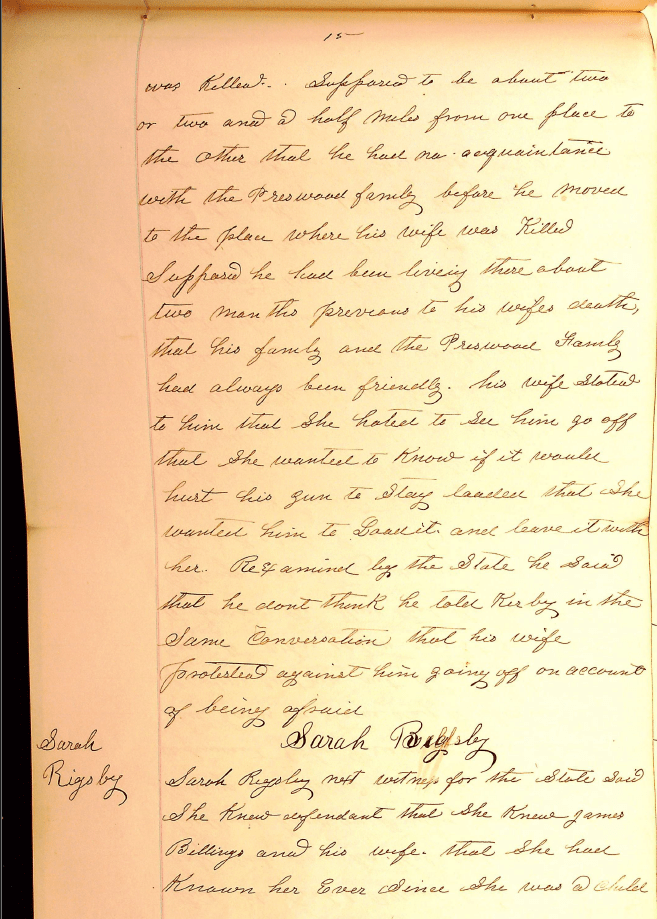 15
was Killed. Supposed to be about two
or two and a half miles from one place to
the other that he had no acquaintance
with the Preswood family before he moved
to the place where his wife was Killed
Supposd he had been liveing there about
two months previous to his wifes death,
that his family and the Preswood Family
had always been friendly. his wife Stated
to him that She hated to See him go off
that She wanted to Know if it would
hurt his gun to Stay loaded that She
wanted him to Load it and leave it with
her. ReExamind by the State he Said
that he dont think he told Kirby in the
Same Conversation that his wife
protested against him going off on account
of being afraid
Sarah
Sarah
Rigsby
Sarah Rigsby next witness for the State Said
She Knew defendant that She Knew James
Billings and his wife. that She had
Known her Ever Since She was a Child